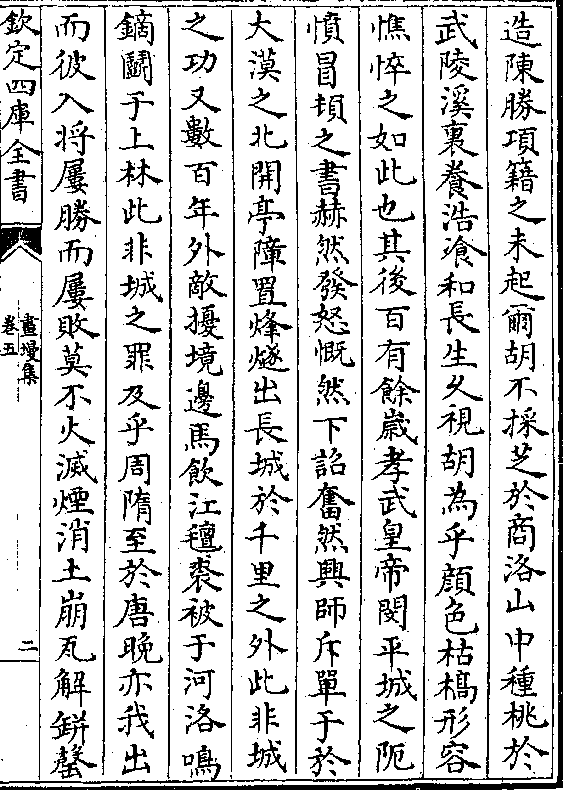 造陳勝項籍之未起爾胡不採芝於商洛山中種桃於
武陵溪裏養浩飡和長生久視胡為乎顔色枯槁形容
憔悴之如此也其後百有餘嵗孝武皇帝閔平城之阨
憤冒頓之書赫然發怒慨然下詔奮然興師斥單于於
大漠之北開亭障置烽燧出長城於千里之外此非城
之功又數百年外敵擾境邊馬飲江氊裘被于河洛鳴
鏑鬭于上林此非城之罪及乎周隋至於唐晚亦我出
而彼入將屢勝而屢敗莫不火滅煙消土崩瓦解鉼罄
欽定四庫全書
畫墁集
卷五
二